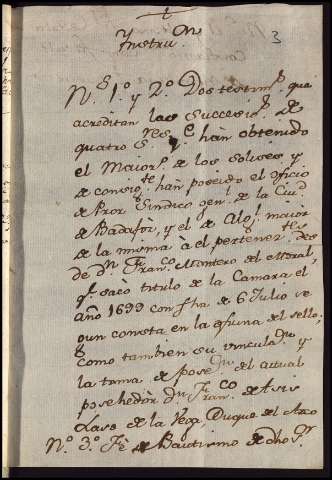 3
Instru.n
N.s 1.o y 2.o Dos testim.s que
acreditan las succesio.s de
quatro S.res q.e han obtenido
el Maior.o de los Solises y
de consig.te han poseido el oficio
de Pror Sindico gen.l de la Ciu.d
de Badajoz, y el de Alg.l maior
de la misma a el pertenez.tes
de D.n Fran.co Montero del Moral,
q.e saco titulo de la Camara el
año 1699 con fha de 6 Julio se
gun consta en la del sello;
como tambien su vincula.on y
la toma de pose.on del actual
posehedor D.n Fran.co de Asis
Laso de la Vega, Duque del Arco
N.o 3.o Fè de Bautismo de dho S.r